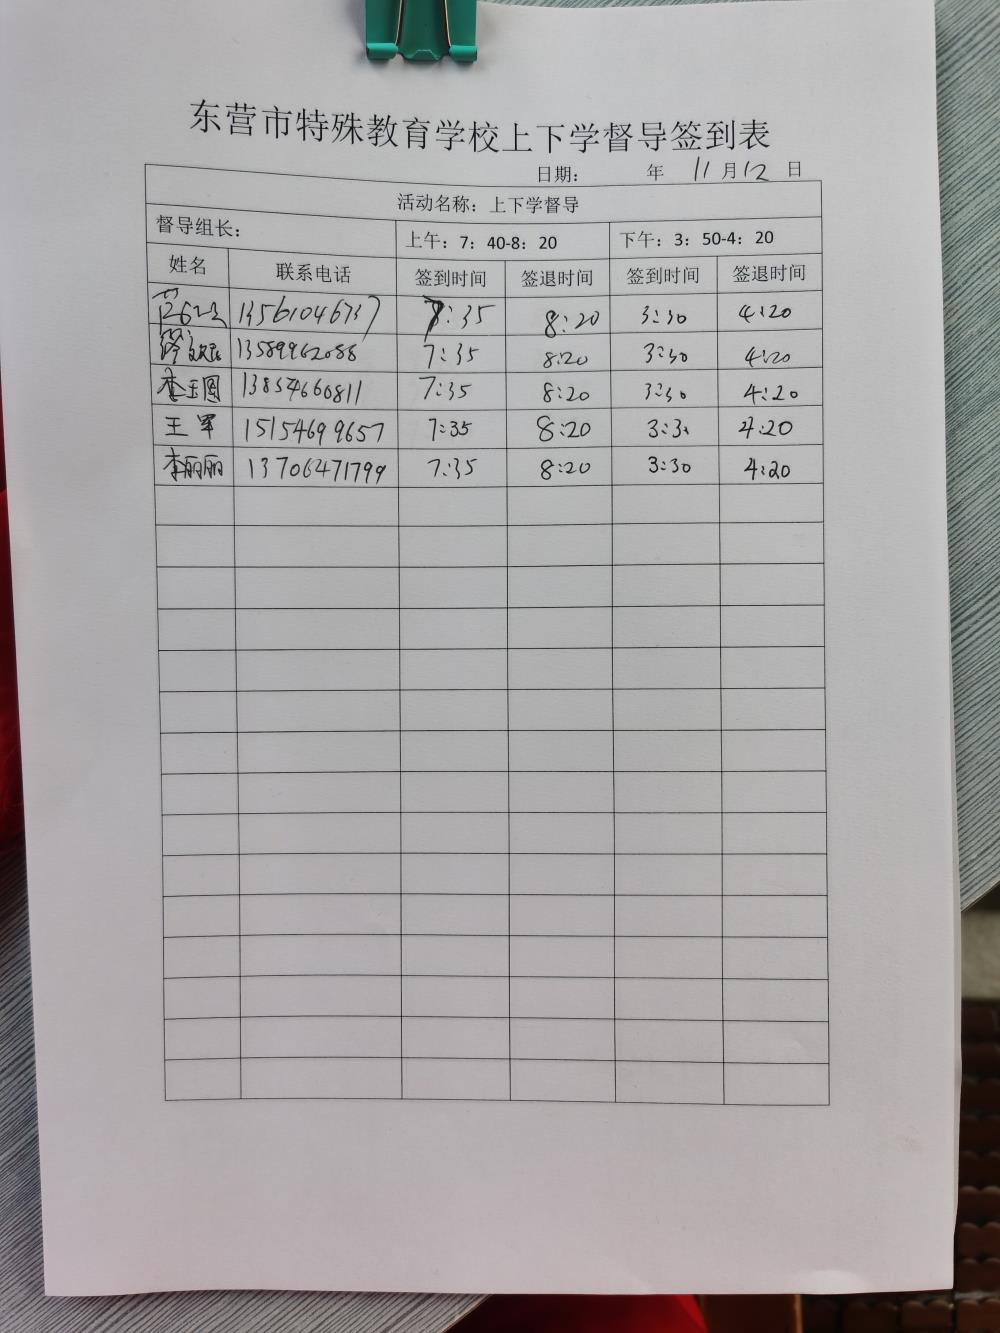 东营市特殊教育学校上下学督导签到表
日期： 年 11月12日
活动名称：上下学督导
督导组长： 上午：7：40-8：20 下午：3：50-4：20
姓名 联系电话 签到时间 签退时间 签到时间 签退时间
13561046737 7:35 8:20 3:30 4:20
13589962088 7:35 8:20 3:30 4:20
李玉国 13854660811 7:35 8:20 3:30 4:20
王军 15154699657 7:35 8:20 3:30 4:20
李丽丽 13706471799 7:35 8:20 3:30 4:20